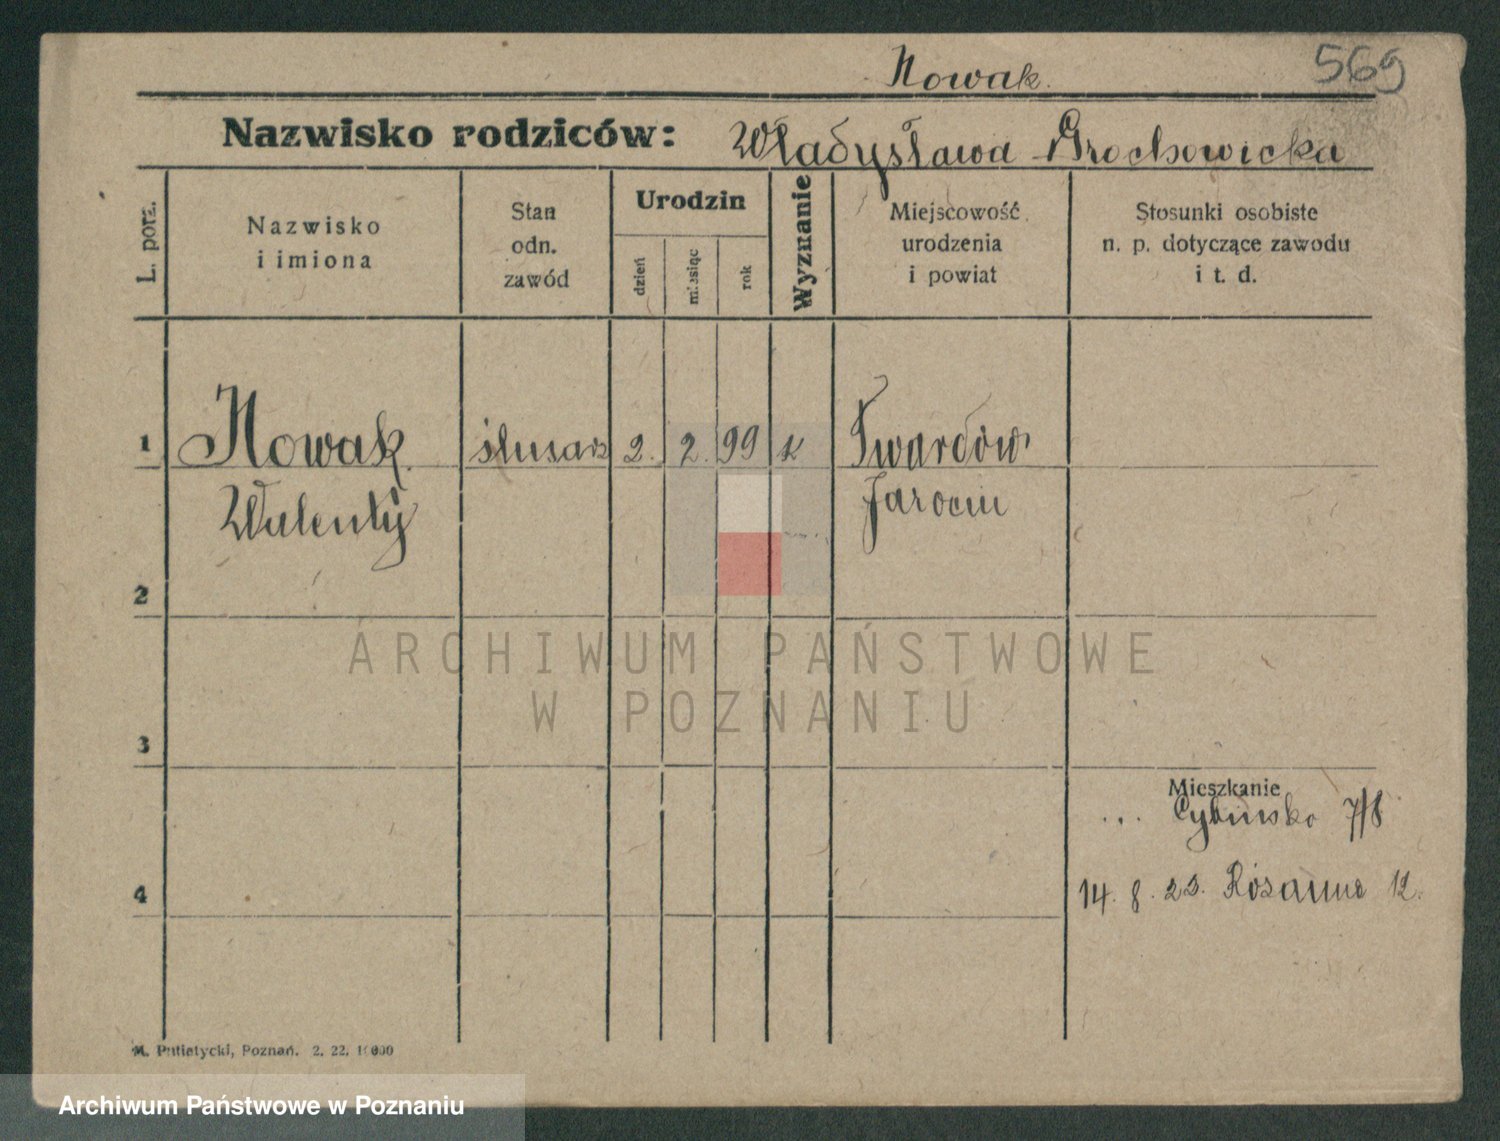 Nowak.
569
Nazwisko rodziców: Władysława Grochowicka
L. porz.
Nazwisko
i imiona
Stan
odn.
zawód
Urodzin
dzień
miesiąc
rok
Wyznanie
Miejscowość
urodzenia
i powiat
Stosunki osobiste
n. p. dotyczące zawodu
i t. d.
1 Nowak. ślusarz 2. 2. 99 k Twardów
Walenty Jarocin
2
ARCHIWUM PAŃSTWOWE
W POZNANIU
3
Mieszkanie
... Cybińska 7/8
4
14. 8. 22. 12.
M. Putiatycki, Poznań. 2. 22. 10000
Archiwum Państwowe w Poznaniu